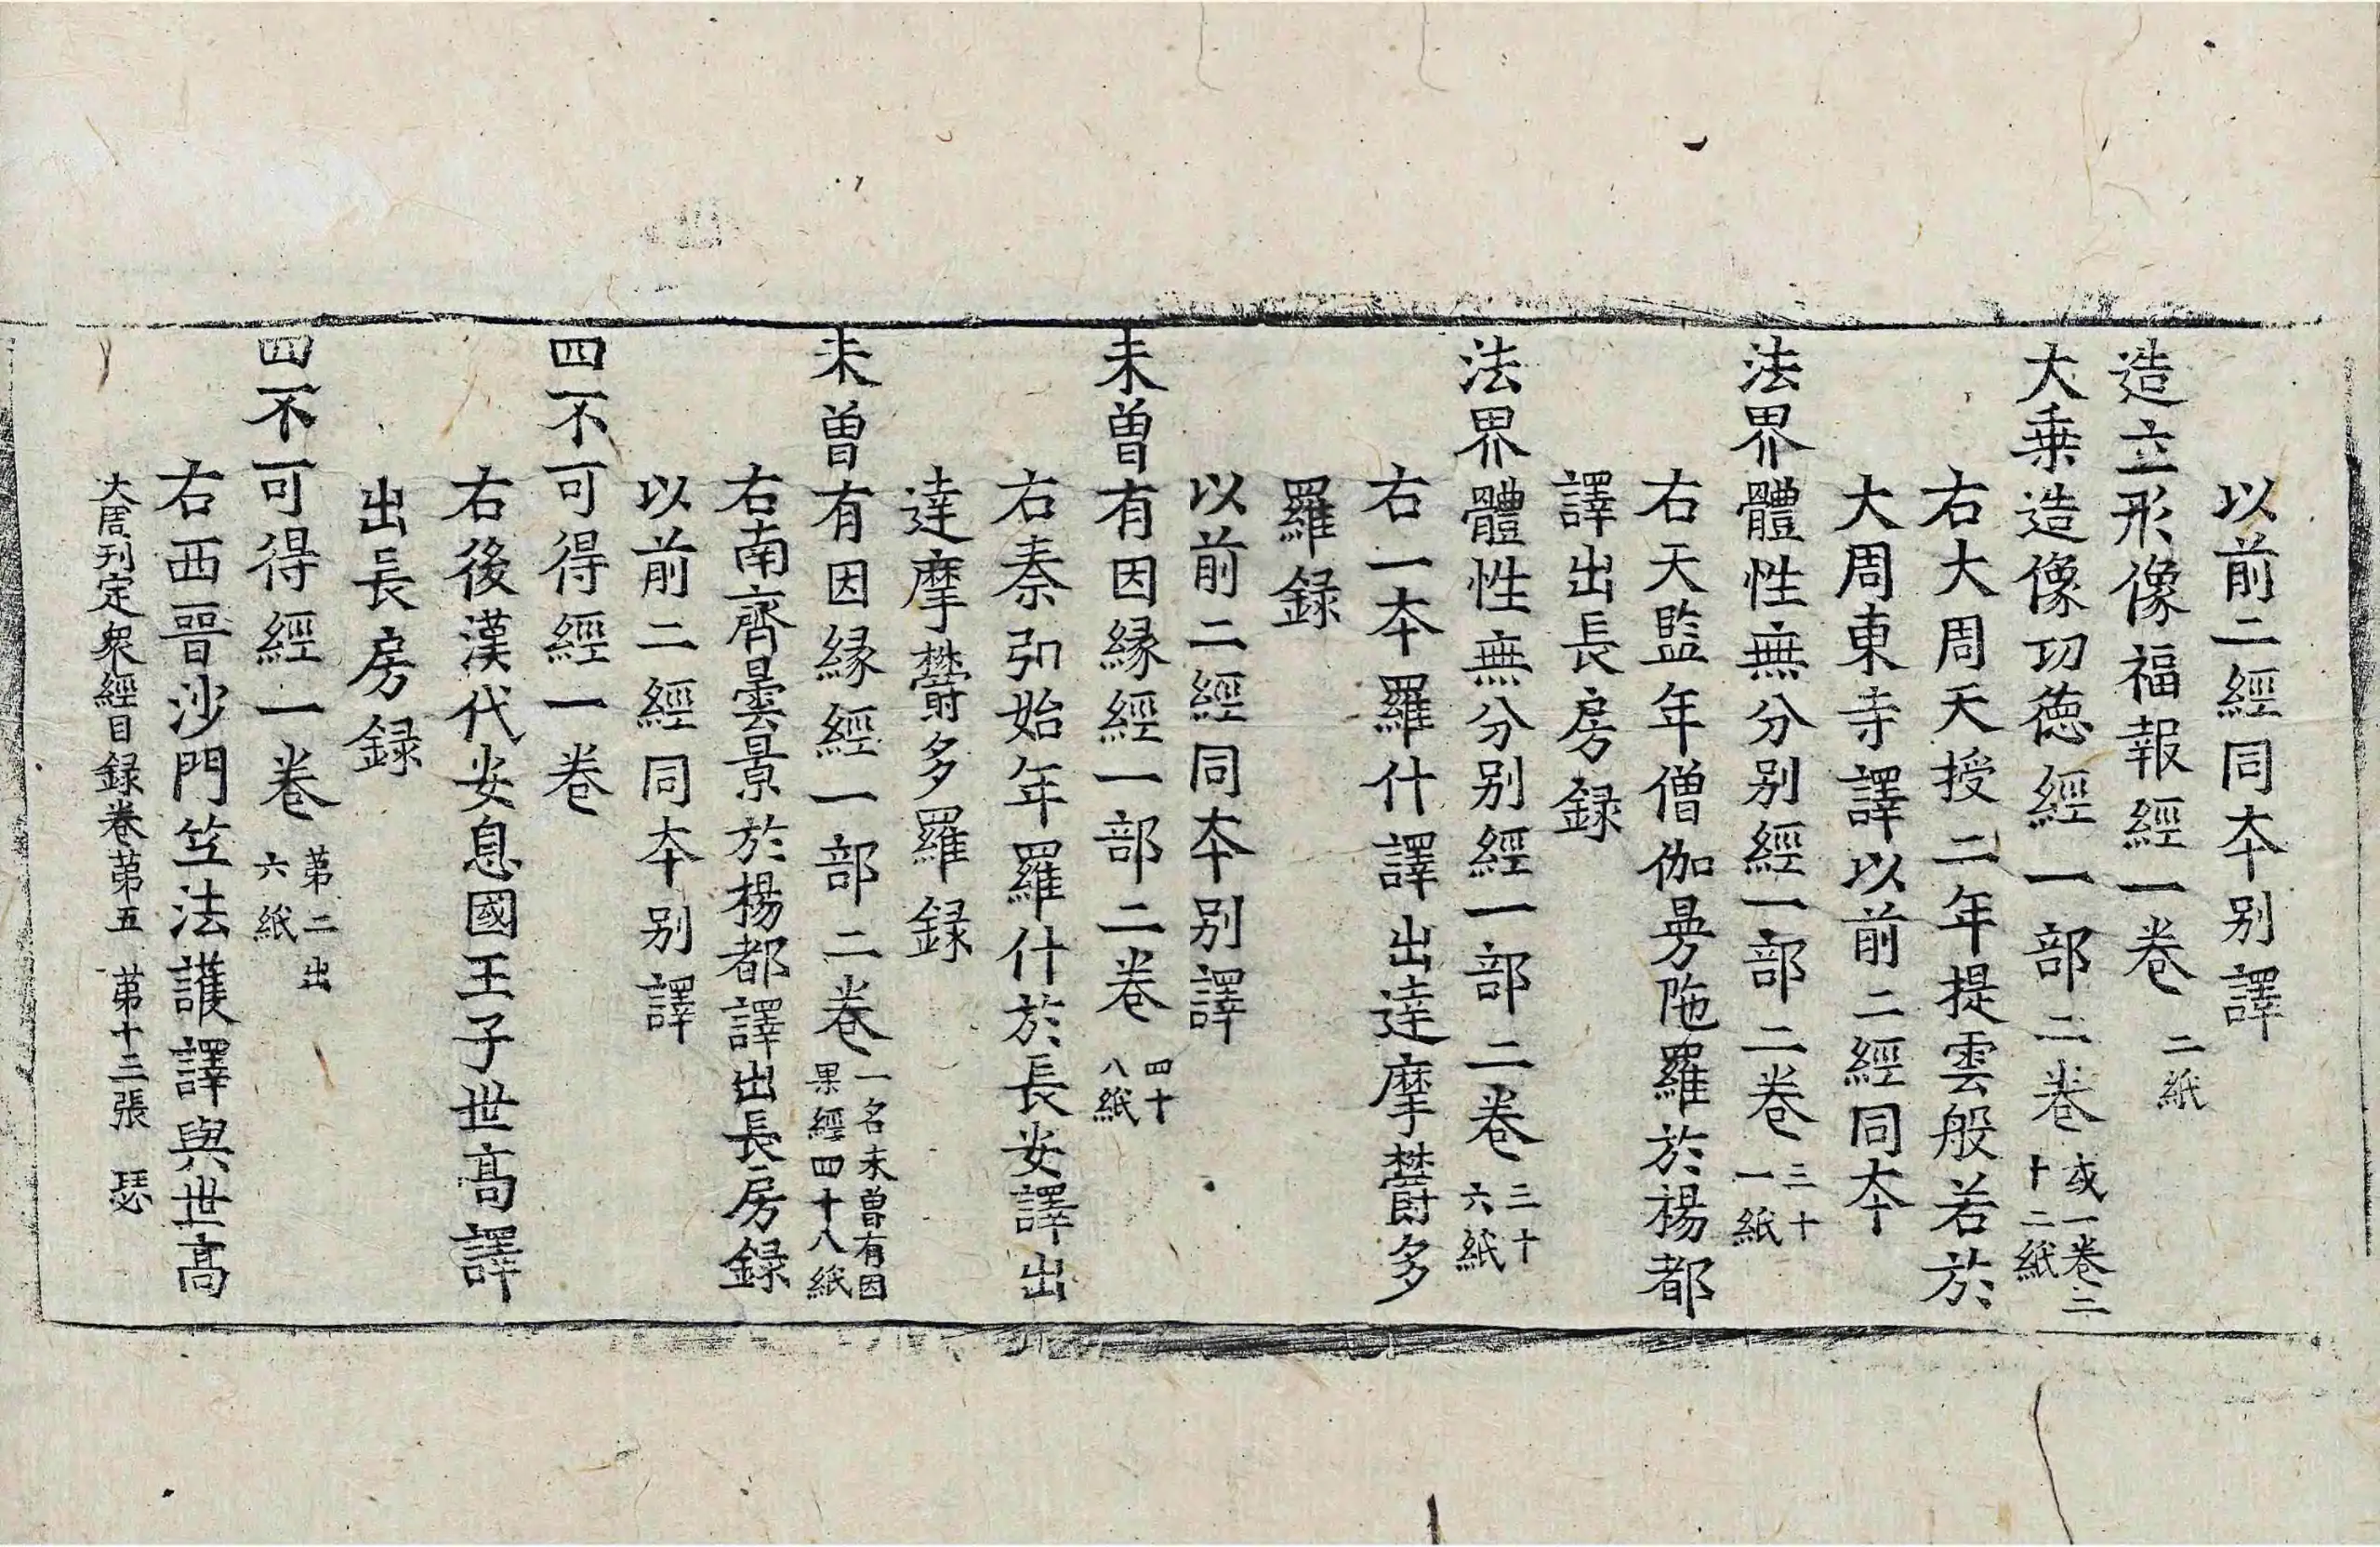 以前二經同本别譯
造立形像福報經一卷二紙
大乗造像功徳經一部二卷或一卷二十二紙
右大周天授二年提雲般若於
大周東寺譯以前二經同本
法界體性無分别經一部二卷三十一紙
右天監年僧伽㝵陁羅於楊都
譯出長房録
法界體性無分别經一部二卷三十六紙
右一本羅什譯出達摩欝多
羅録
以前二經同本别譯
未曽有因縁經一部二卷四十八紙
右秦弘始年羅什於長安譯出
達摩欝多羅録
未曽有因縁經一部二卷一名未曽有因果經四十八紙
右南齊曇景於楊都譯出長房録
以前二經同本别譯
四不可得經一卷
右後漢代安息國王子世髙譯
出長房録
四不可得經一卷第二出六紙
右西晉沙門竺法護譯與世髙
大周刊定衆經目録卷第五 第十三張 瑟